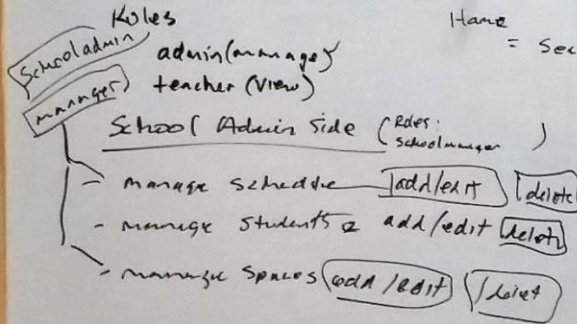 Rules
Home
= Sec
School admin
admin (manage)
manager
teacher (view)
School Admin Side (Roles: school manager)
- manage schedule add/edit delete
- manage students add/edit delete
- manage spaces add/edit /delet